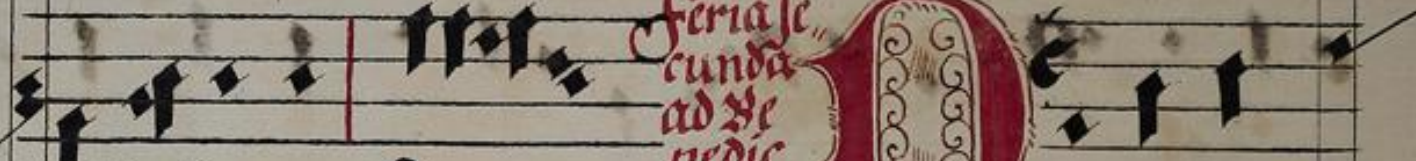 Feria se„
cunda
ad Be
nedic
D